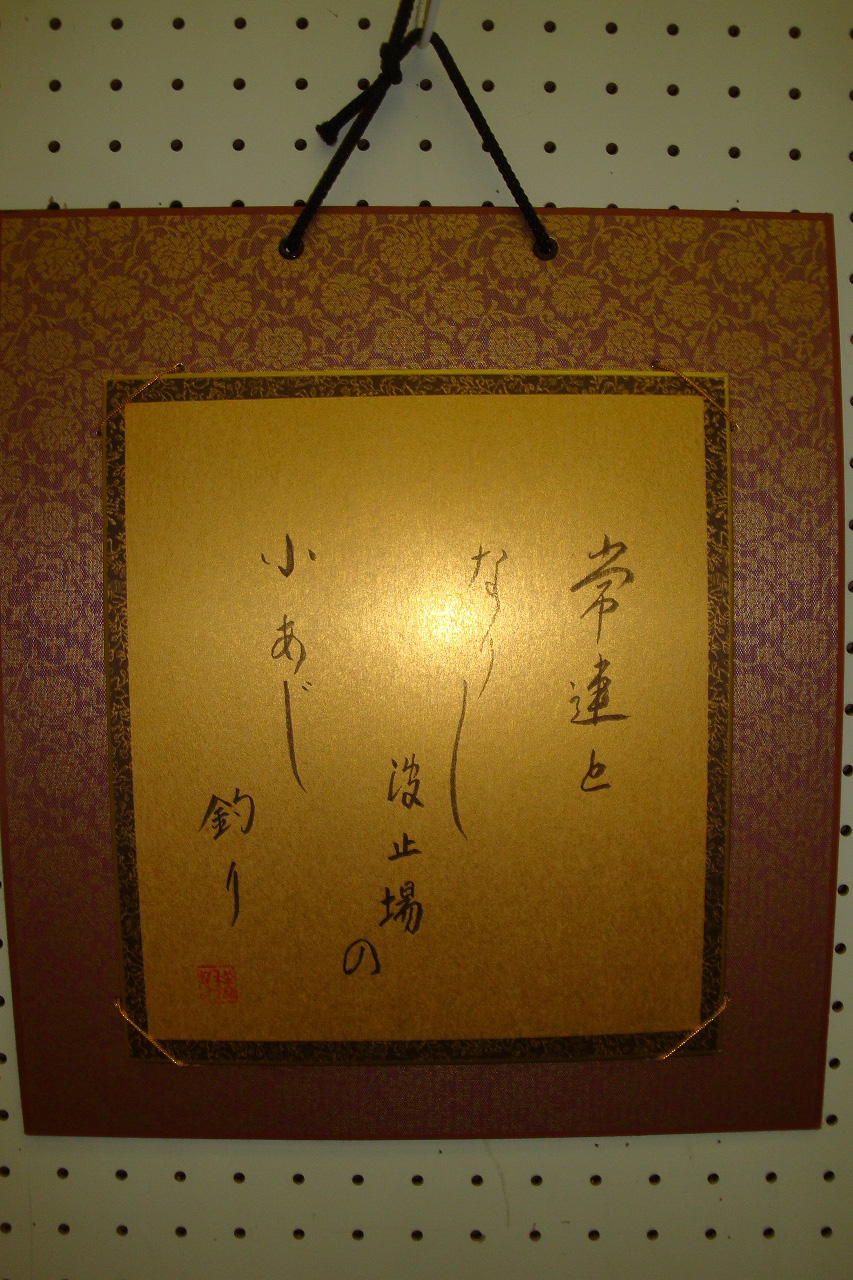 常連と
なりし
波止場の
小あじ
釣り